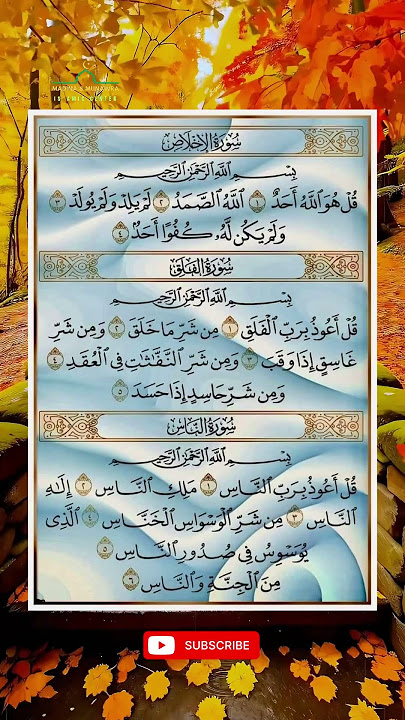 MADINA E MUNAWRA
ISLAMIC CENTER
سُورَةُ الإِخْلَاصِ
بِسْمِ اللَّهِ الرَّحْمَٰنِ الرَّحِيمِ
قُلْ هُوَ اللَّهُ أَحَدٌ ١ اللَّهُ الصَّمَدُ ٢ لَمْ يَلِدْ وَلَمْ يُولَدْ ٣
وَلَمْ يَكُن لَّهُۥ كُفُوًا أَحَدٌ ٤
سُورَةُ الفَلَقِ
بِسْمِ اللَّهِ الرَّحْمَٰنِ الرَّحِيمِ
قُلْ أَعُوذُ بِرَبِّ الْفَلَقِ ١ مِن شَرِّ مَا خَلَقَ ٢ وَمِن شَرِّ
غَاسِقٍ إِذَا وَقَبَ ٣ وَمِن شَرِّ النَّفَّٰثَٰتِ فِي الْعُقَدِ ٤
وَمِن شَرِّ حَاسِدٍ إِذَا حَسَدَ ٥
سُورَةُ النَّاسِ
بِسْمِ اللَّهِ الرَّحْمَٰنِ الرَّحِيمِ
قُلْ أَعُوذُ بِرَبِّ النَّاسِ ١ مَلِكِ النَّاسِ ٢ إِلَٰهِ
النَّاسِ ٣ مِن شَرِّ الْوَسْوَاسِ الْخَنَّاسِ ٤ الَّذِي
يُوَسْوِسُ فِي صُدُورِ النَّاسِ ٥
مِنَ الْجِنَّةِ وَالنَّاسِ ٦
SUBSCRIBE